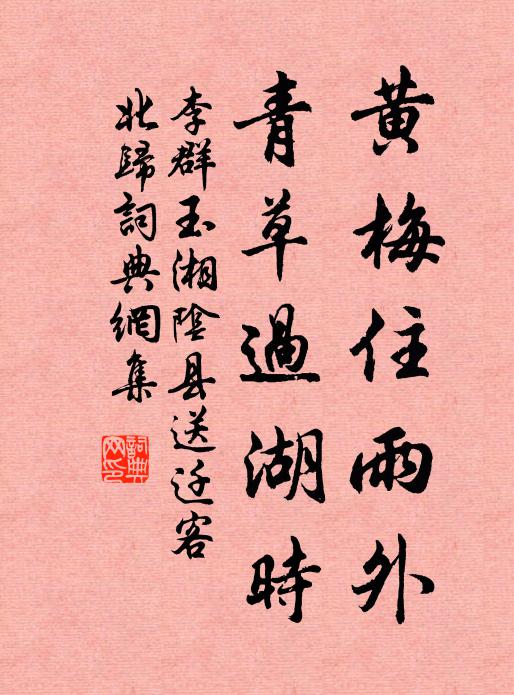 黄梅住雨外
青草過湖時
李群玉湘陰县送迁客
北歸詞典網集
詞典
网印